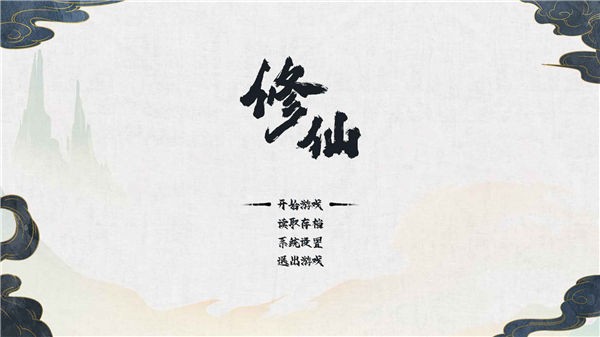 修仙
开始游戏
读取存档
系统设置
退出游戏